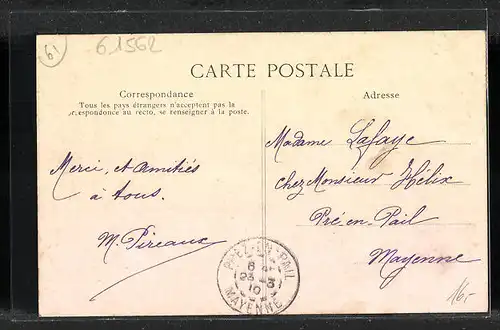 61
61562
CARTE POSTALE
Correspondance
Tous les pays étrangers n'acceptent pas la
correspondance au recto, se renseigner à la poste.
Adresse
Merci, et Amitiés
à tous.
M. Pireaux
Madame Lafaye
chez Monsieur Hélix
Pré-en-Pail
Mayenne
PRÉ-EN-PAIL
6
23 - 3
10
MAYENNE
16.-